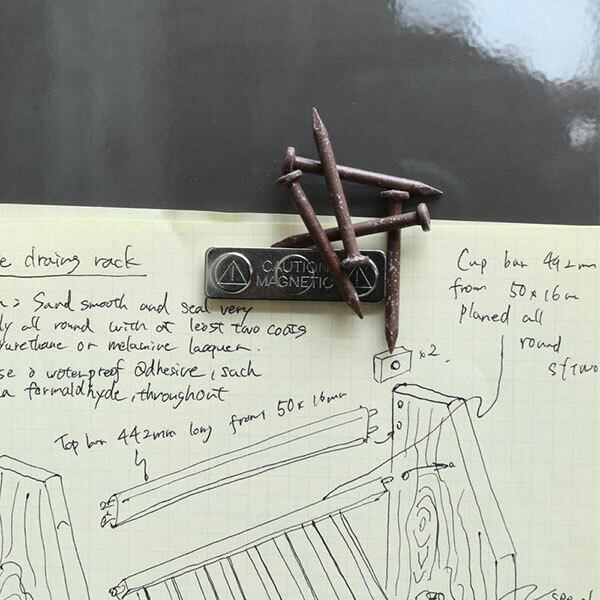 e draing rack
Sand smooth and seal very
ly all round with at least two coats
urethane or melamine lacquer.
se a waterproof adhesive, such
a formaldehyde, throughout
CAUTION
MAGNETIC
Cup bar 442mm
from 50x16m
planed all
round
x2.
Top bar 442mm long from 50x16mm